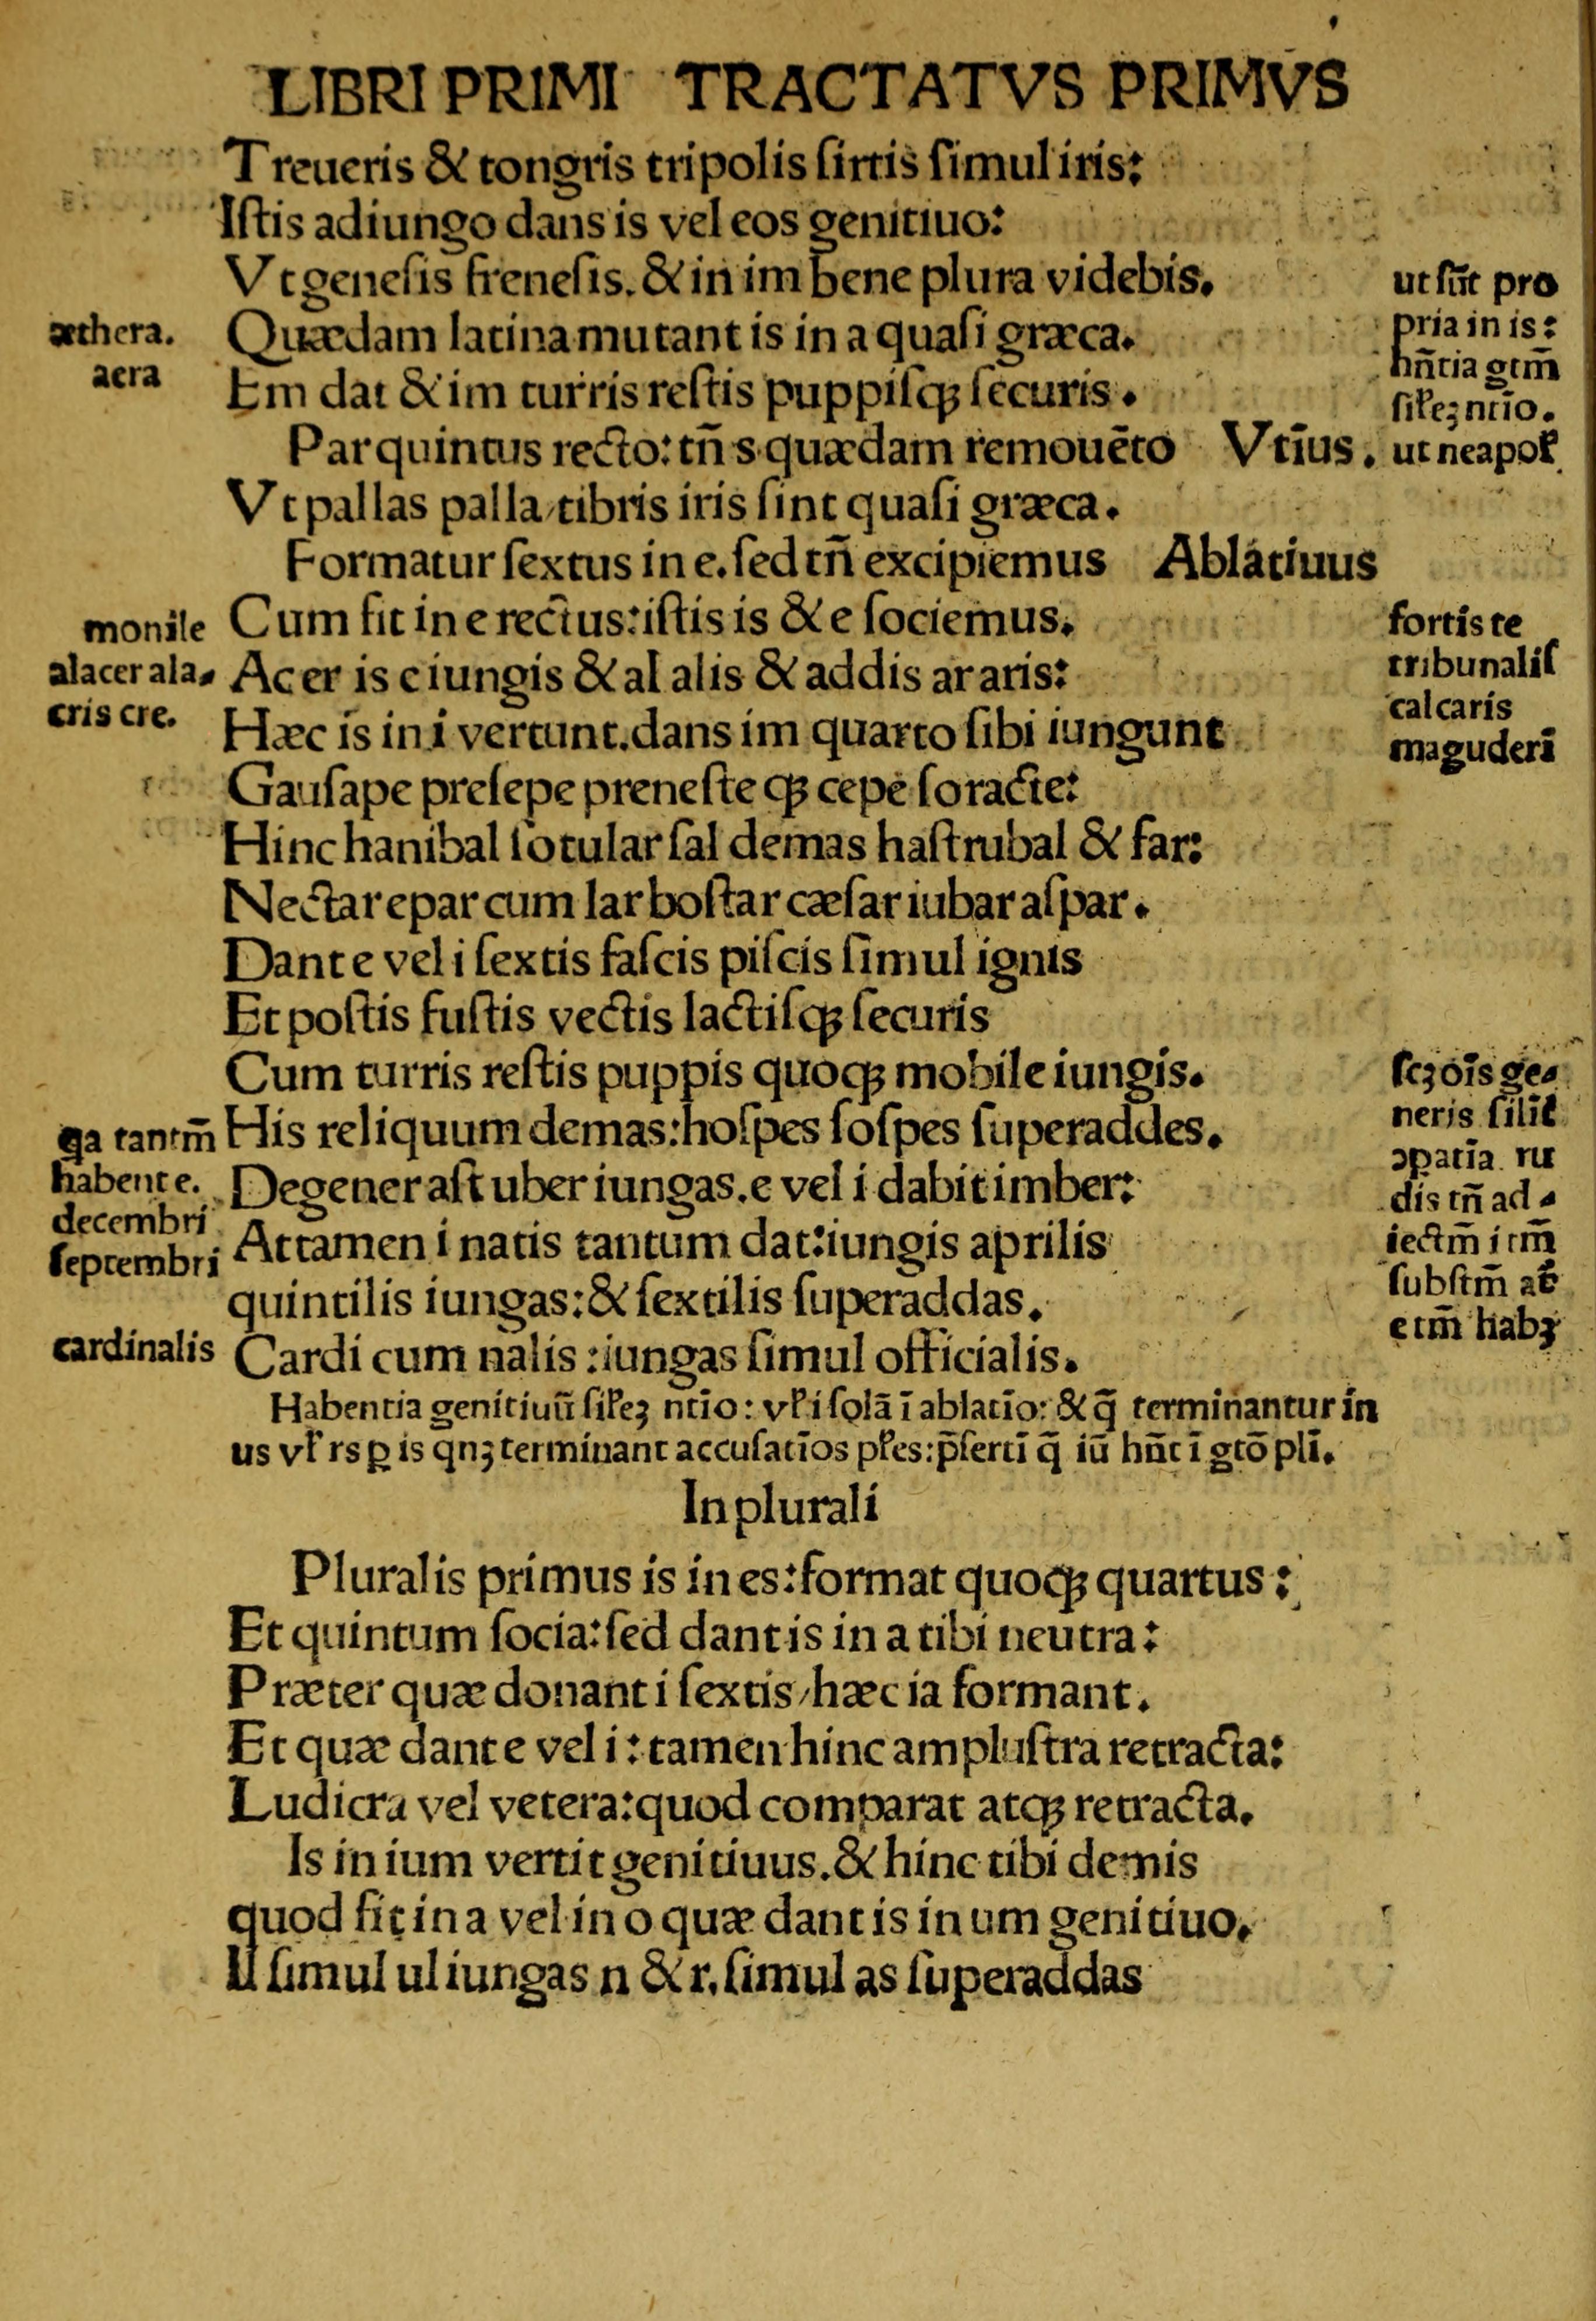 LIBRI PRIMI TRACTATVS PRIMVS
Treueris & tongris tripolis ſirtis ſimul iris:
Iſtis adiungo dans is vel eos genitiuo:
Vt geneſis freneſis. & in im bene plura videbis.
Quædam latina mutant is in a quaſi græca.
Em dat & im turris reſtis puppiſqꝫ ſecuris.
Par quintus recto: tñ s quædam remouēto Vtīus.
Vt pallas palla/tibris iris ſint quaſi græca.
Formatur ſextus in e. ſed tñ excipiemus Ablatiuus
Cum fit in e rectus: iſtis is & e ſociemus.
Acer is c iungis & al alis & addis ar aris:
Hæc is in i vertunt. dans im quarto ſibi iungunt
Gauſape preſepe preneſte qꝫ cepe ſoracte:
Hinc hanibal ſotular ſal demas haſtrubal & far:
Nectar epar cum lar boſtar cæſar iubar aſpar.
Dant e vel i ſextis faſcis piſcis ſimul ignis
Et poſtis fuſtis vectis lactiſqꝫ ſecuris
Cum turris reſtis puppis quoqꝫ mobile iungis.
His reliquum demas: hoſpes ſoſpes ſuperaddes.
Degener aſt uber iungas. e vel i dabit imber:
Attamen i natis tantum dat: iungis aprilis
quintilis iungas: & ſextilis ſuperaddas.
Cardi cum nalis: iungas ſimul officialis.
Habentia genitiuū ſiꝉeꝫ ntīo: vꝉ i ſolā ī ablatīo: & q̄ terminantur in
us vꝉ rs ꝑ is qnꝫ terminant accuſatīos pꝉes: p̄ſertī q̄ iū hñt ī gtō plī.
In plurali
Pluralis primus is in es: format quoqꝫ quartus:
Et quintum ſocia: ſed dant is in a tibi neutra:
Præter quæ donant i ſextis/hæc ia formant.
Et quæ dant e vel i: tamen hinc ampluſtra retracta:
Ludicra vel vetera: quod comparat atqꝫ retracta.
Is in ium vertit genitiuus. & hinc tibi demis
quod fit in a vel in o quæ dant is in um genitiuo.
Il ſimul ul iungas n & r. ſimul as ſuperaddas
æthera.
aera
monile
alacer ala-
cris cre.
qa tantm̄
habent e.
decembri
ſeptembri
cardinalis
ut ſūt pro
pria in is:
hñtia gtm̄
ſiꝉeꝫ ntīo.
ut neapoꝉ
fortis te
tribunaliſ
calcaris
maguderī
ſcꝫ oīs ge-
neris ſilīꝉ
ↄꝑatīa ru
dis tñ ad-
iectm̄ i tm̄
ſubſtm̄ at̄
e tm̄ habꝫ